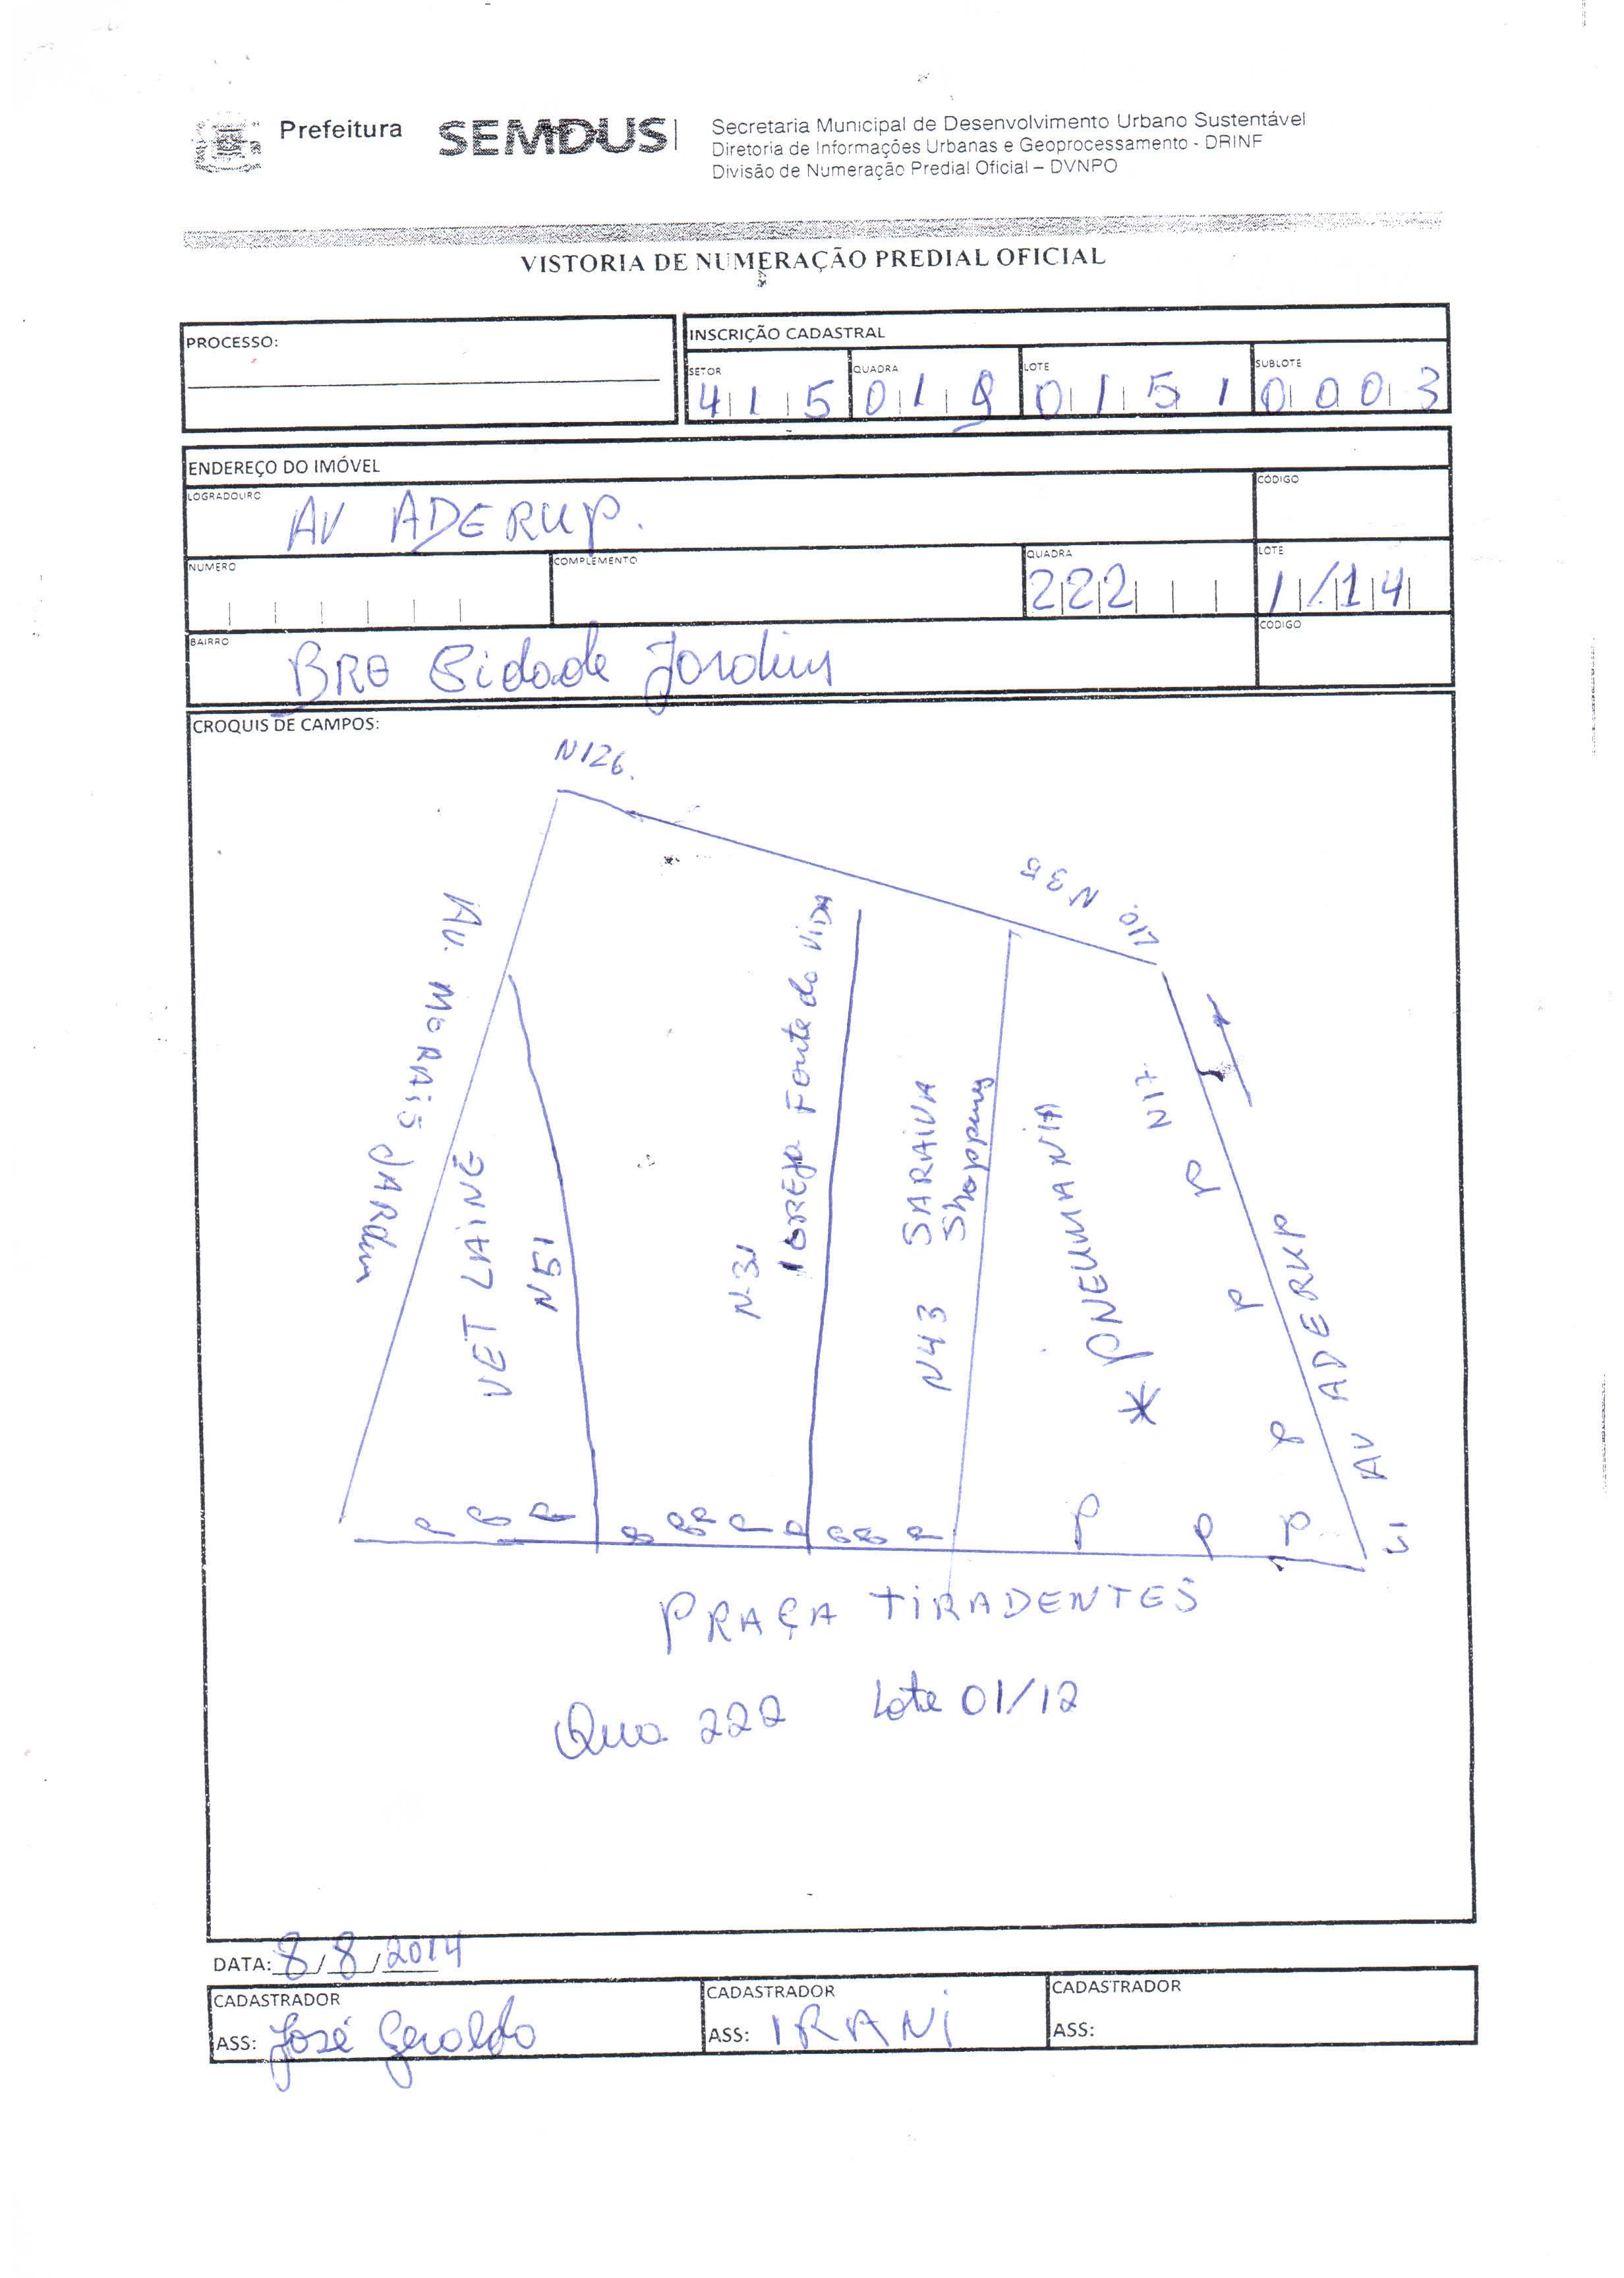 Prefeitura SEMDUS
Secretaria Municipal de Desenvolvimento Urbano Sustentável
Diretoria de Informações Urbanas e Geoprocessamento - DRINF
Divisão de Numeração Predial Oficial – DVNPO
VISTORIA DE NUMERAÇÃO PREDIAL OFICIAL
PROCESSO:
INSCRIÇÃO CADASTRAL
SETOR QUADRA LOTE SUBLOTE
415 019 0151 0003
ENDEREÇO DO IMÓVEL
LOGRADOURO CÓDIGO
AV ADERUP.
NUMERO COMPLEMENTO QUADRA LOTE
222 1/14
BAIRRO CODIGO
BRE Cidade Jardim
CROQUIS DE CAMPOS:
N126.
N35
Av. MORAiS JARdim
VET LAINE
N51
N-31
IGREJA Fonte da ViDA
N43 SARAIVA
Shopping
* PNEUMANIA
N17
P P P
AV ADERUP
P P P
PRAÇA TIRADENTES
Qua 222 Lote 01/12
DATA: 8/8/2014
CADASTRADOR CADASTRADOR CADASTRADOR
ASS: José Geraldo ASS: IRANi ASS: